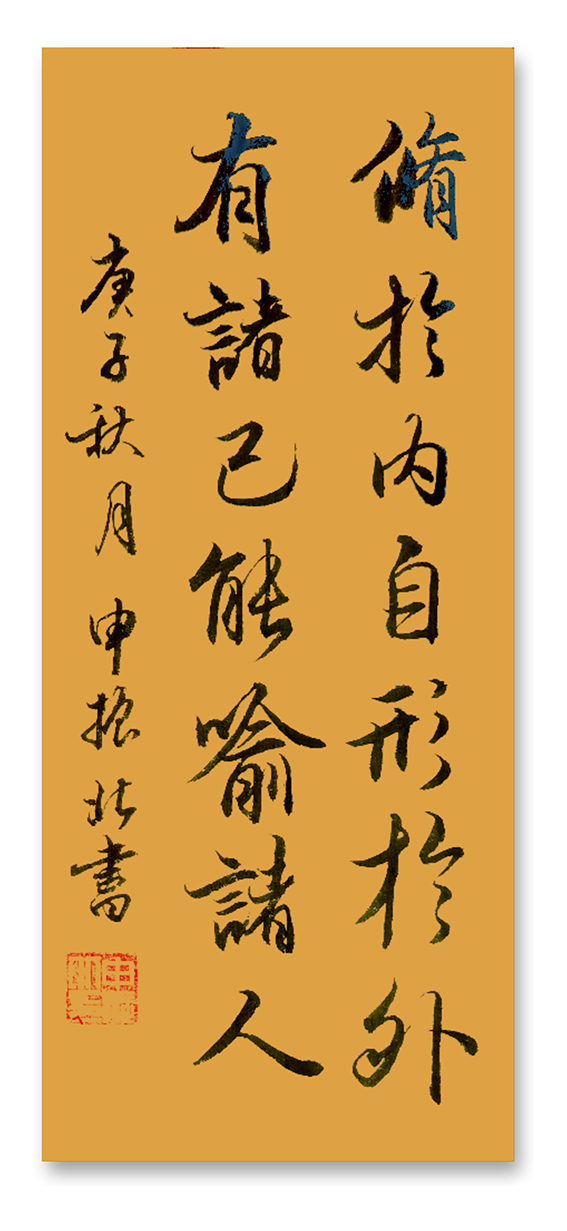 脩於内自形於外
有諸己能喻諸人
庚子秋月申振北書